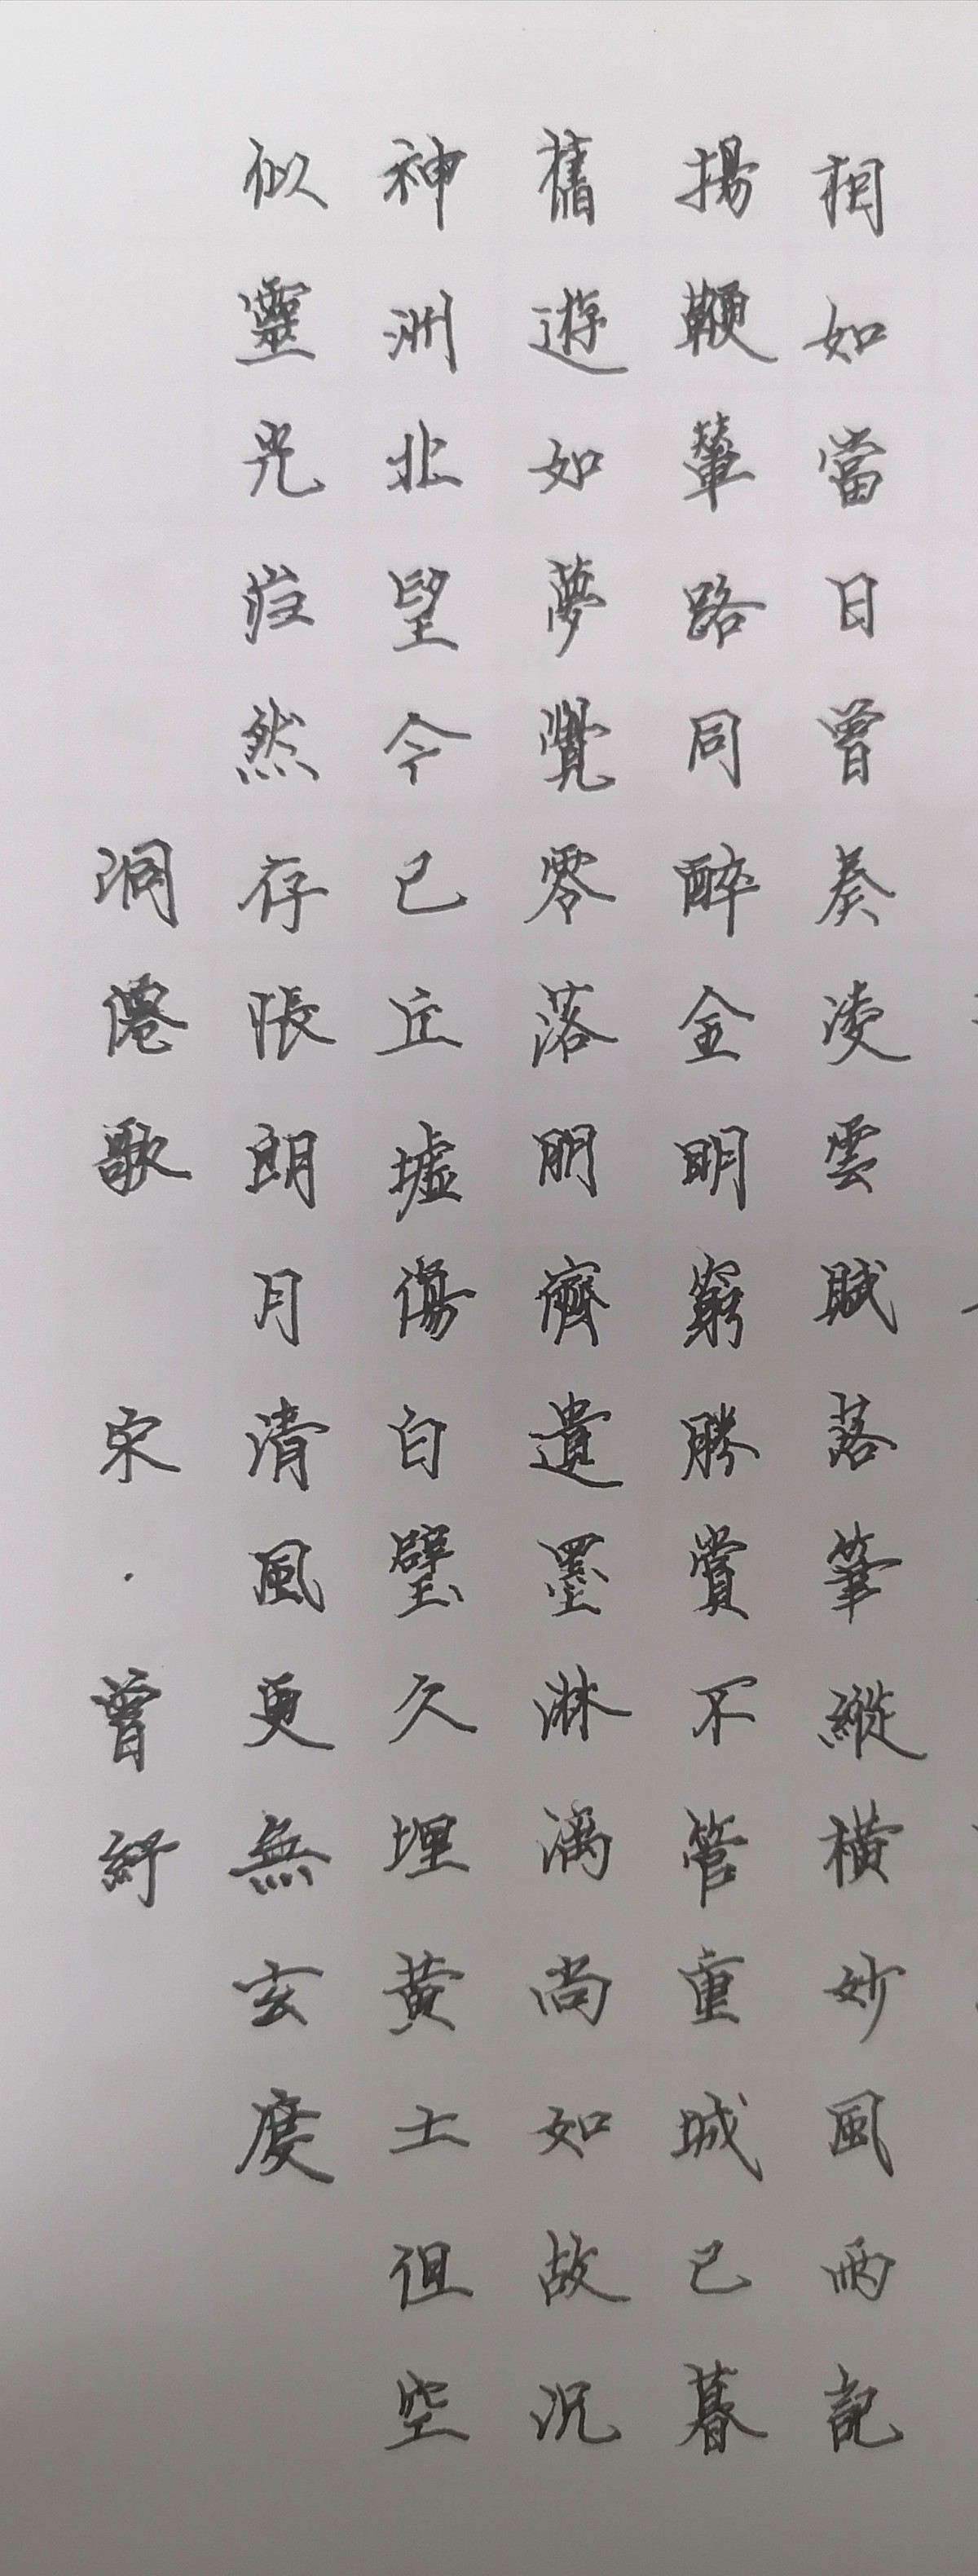 相如當日曾奏凌雲賦落筆縱橫妙風雨記
揚鞭輦路同醉金明窮勝賞不管重城已暮
舊遊如夢覺零落朋儕遺墨淋漓尚如故況
神洲北望今已丘墟傷白璧久埋黃土但空
似靈光然存悵朗月清風更無玄度
洞僊歌 宋·曾紆